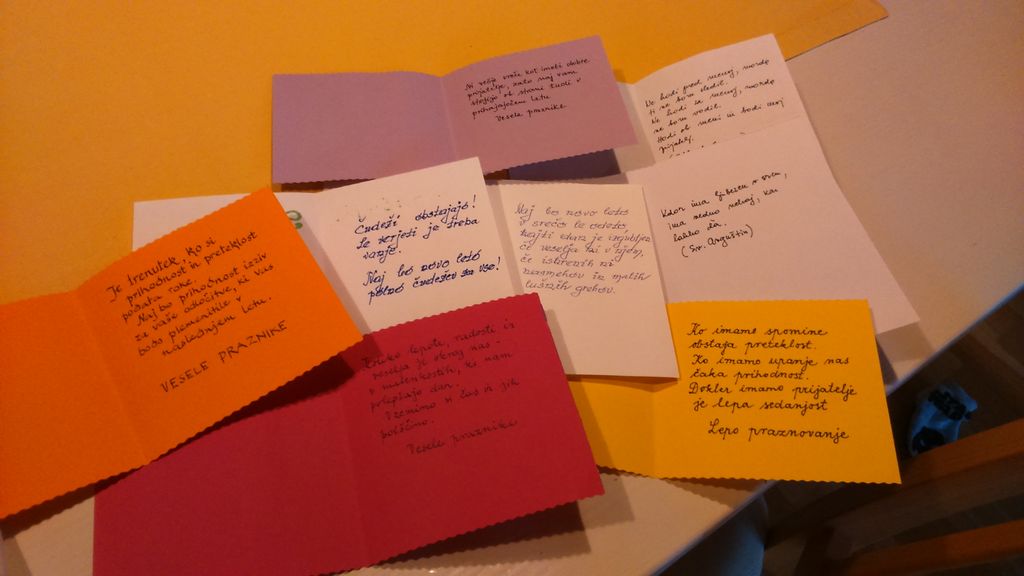 Ni večje sreče kot imeti dobre
prijatelje, zato naj vam
stojijo ob strani tudi v
prihajajočem letu
Vesele praznike
Ne hodi pred menoj, morda
ti ne bom sledil.
Ne hodi za menoj, morda
ne bom vodil.
Hodi ob meni in bodi moj
prijatelj.
Kdor ima ljubezen v srcu,
ima vedno nekaj, kar
lahko da.
(Sv. Avguštin)
Čudeži obstajajo!
Le verjeti je treba
vanje.
Naj bo novo leto
polno čudežev za vse!
Naj bo novo leto
v srečo le odeto,
najti edard je izgubljen
če veselja ni v tvojem,
če iskrenih ni
nasmehov in malih
luštnih grehov.
Je trenutek, ko si
prihodnost in preteklost
podata roke.
Naj bo prihodnost izziv
za vaše odločitve, ki
bodo plemenitile v vas
naslednjem letu.
VESELE PRAZNIKE
Koliko lepote, radosti in
veselja je okrog nas -
v malenkostih, ki nam
polepšajo dan.
Vzemimo si čas in jih
poiščimo.
Vesele praznike
Ko imamo spomine
obstaja preteklost.
Ko imamo upanje nas
čaka prihodnost.
Dokler imamo prijatelje
je lepa sedanjost
Lepo praznovanje